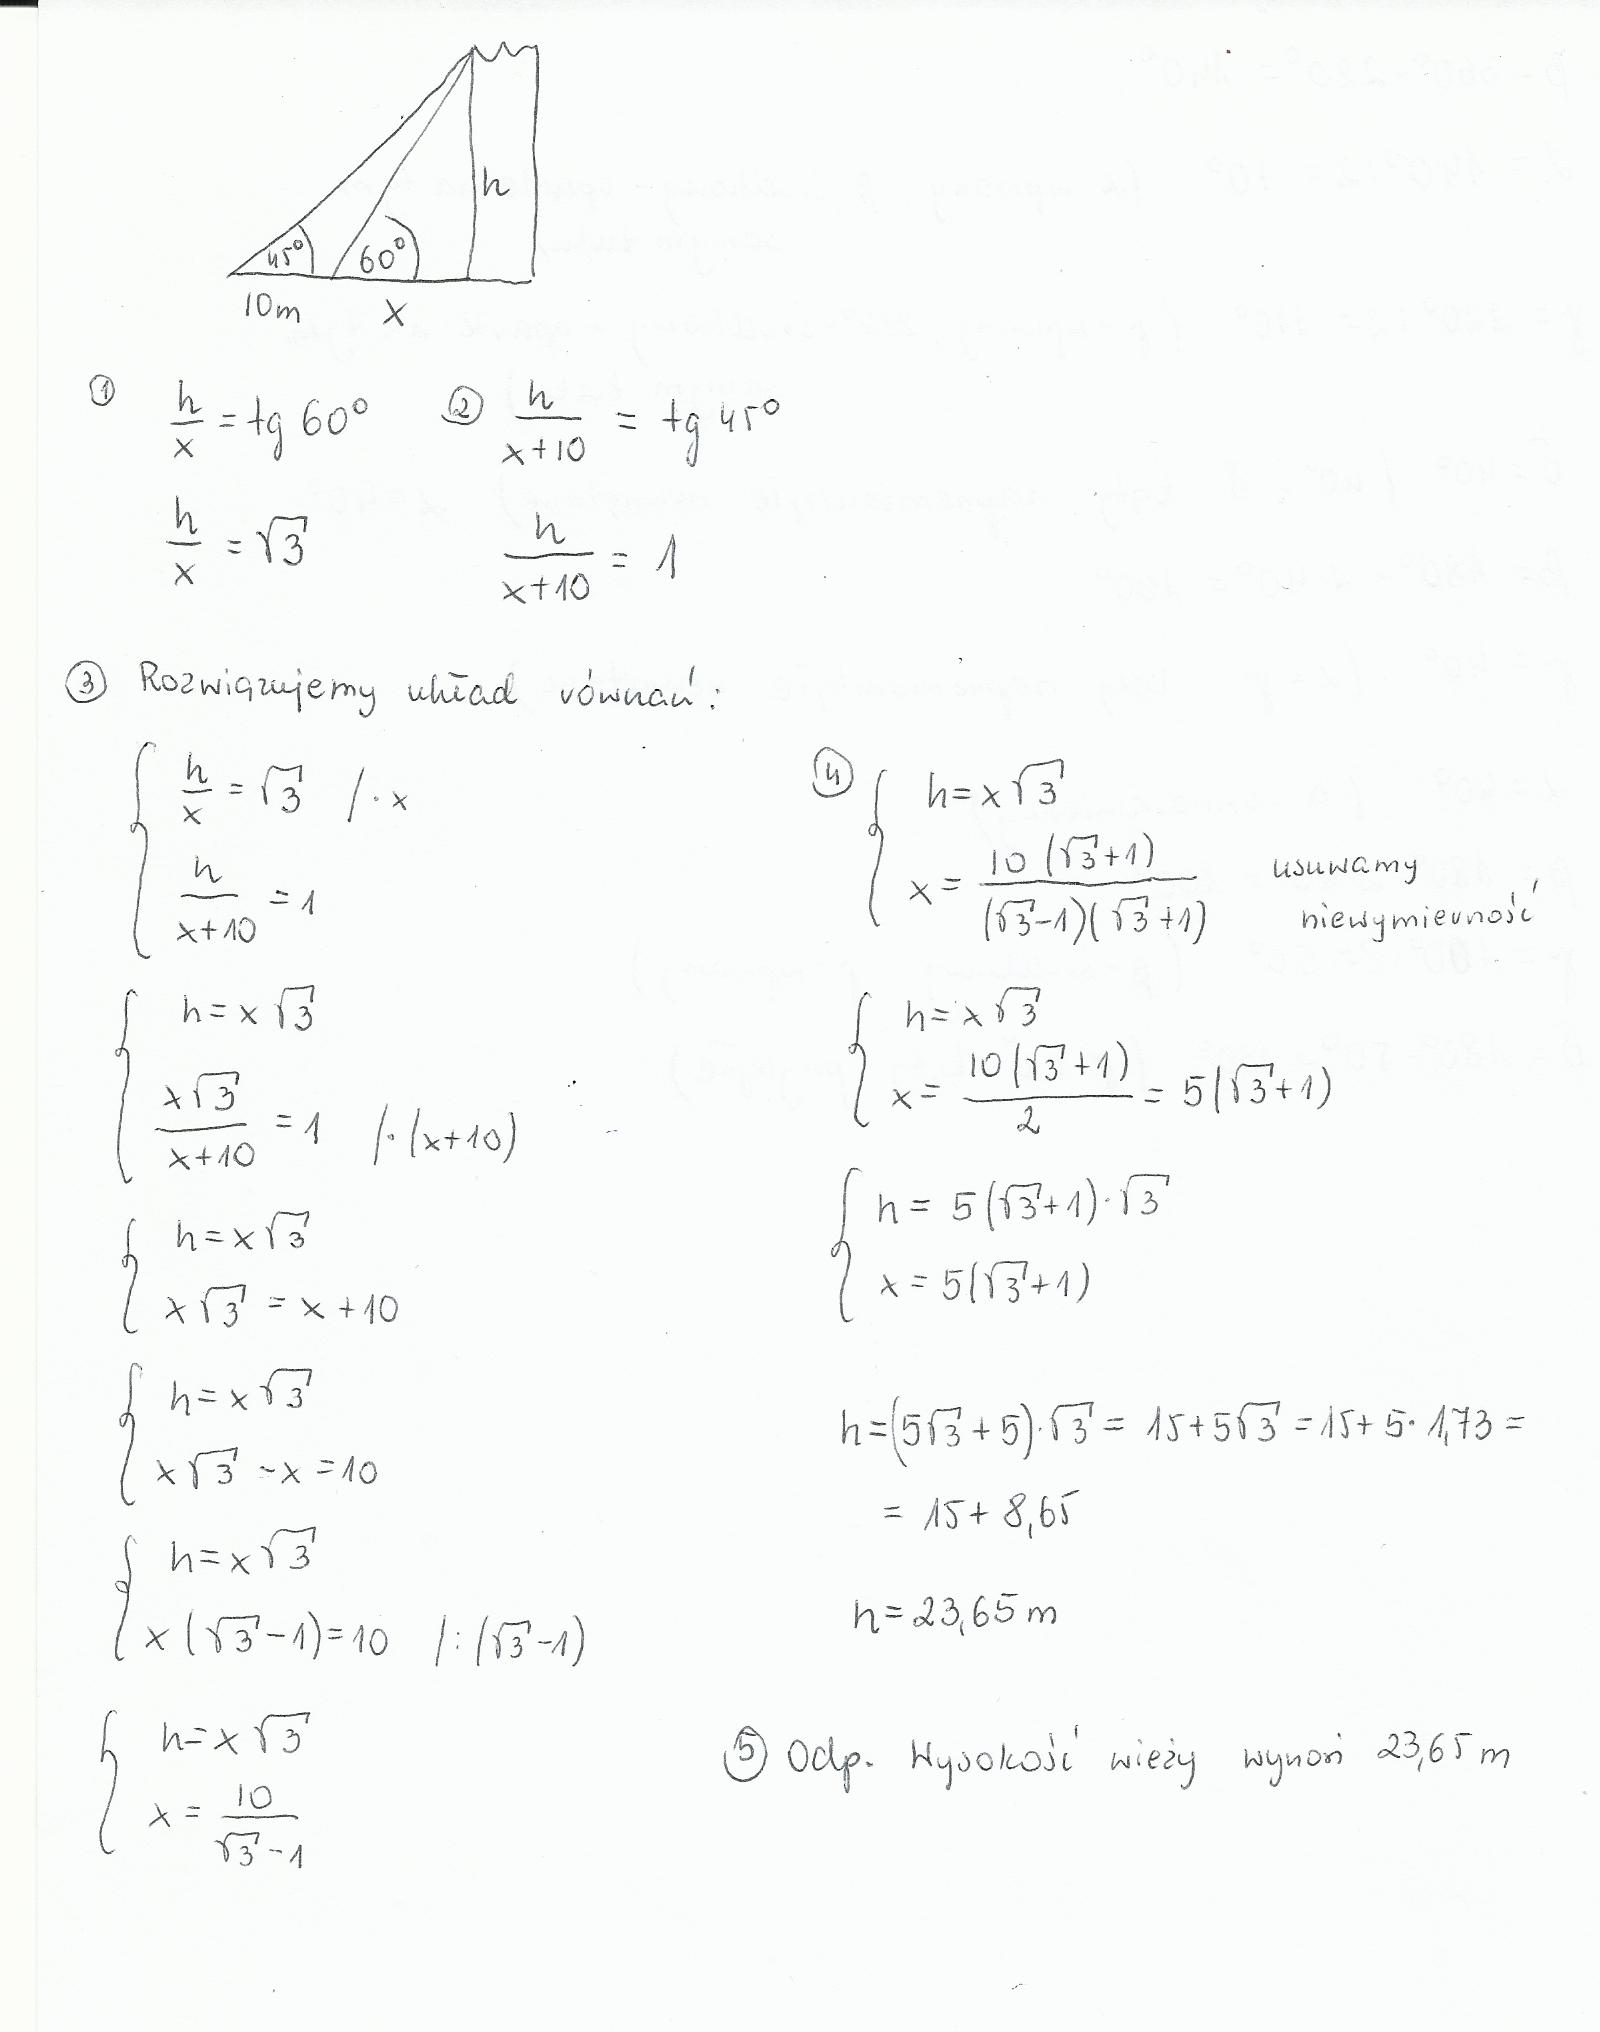 h
45° 60°
10m x
① h/x = tg 60° ② h/(x+10) = tg 45°
h/x = √3 h/(x+10) = 1
③ Rozwiązujemy układ równań:
h/x = √3 /·x
h/(x+10) = 1
h = x√3
x√3/(x+10) = 1 /·(x+10)
h = x√3
x√3 = x + 10
h = x√3
x√3 - x = 10
h = x√3
x(√3 - 1) = 10 /:(√3 - 1)
h = x√3
x = 10/(√3 - 1)
④ h = x√3
x = 10(√3+1)/((√3-1)(√3+1)) usuwamy
niewymierność
h = x√3
x = 10(√3+1)/2 = 5(√3+1)
h = 5(√3+1)·√3
x = 5(√3+1)
h = (5√3 + 5)·√3 = 15 + 5√3 = 15 + 5·1,73 =
= 15 + 8,65
h = 23,65 m
⑤ Odp. Wysokość wieży wynosi 23,65 m